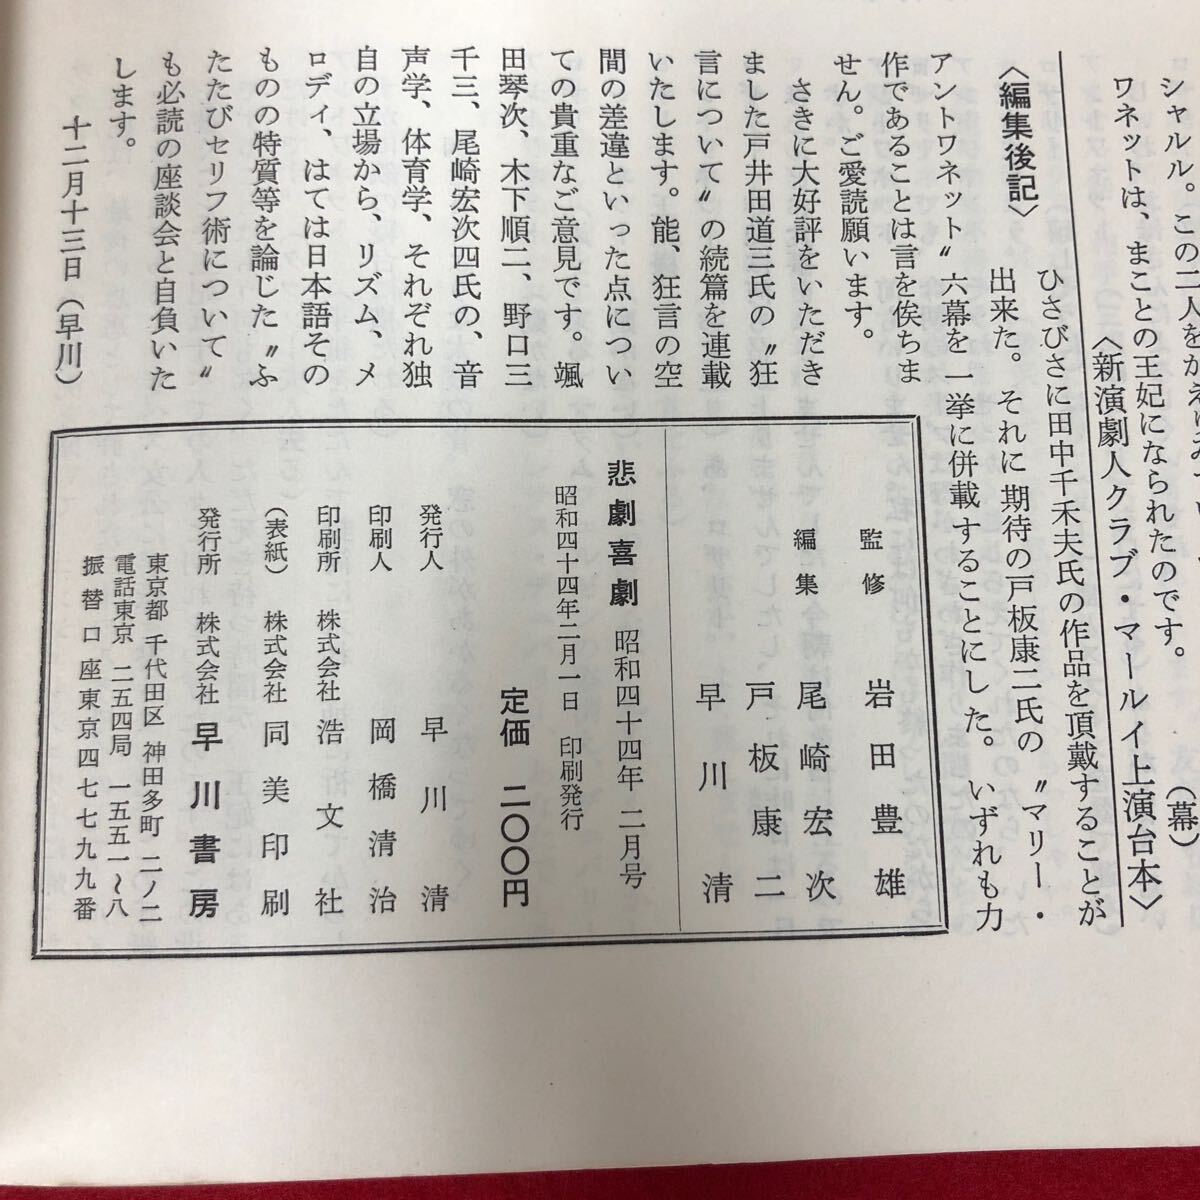 シャルル。この二人を
ワネットは、まことの王妃になられたのです。
（幕）
〈新演劇人クラブ・マールイ上演台本〉
〈編集後記〉
ひさびさに田中千禾夫氏の作品を頂戴することが
出来た。それに期待の戸板康二氏の〝マリー・
アントワネット〟六幕を一挙に併載することにした。いずれも力
作であることは言を俟ちま
せん。ご愛読願います。
さきに大好評をいただき
ました戸井田道三氏の〝狂
言について〟の続篇を連載
いたします。能、狂言の空
間の差違といった点につい
ての貴重なご意見です。颯
田琴次、木下順二、野口三
千三、尾崎宏次四氏の、音
声学、体育学、それぞれ独
自の立場から、リズム、メ
ロディ、はては日本語その
ものの特質等を論じた〝ふ
たたびセリフ術について〟
も必読の座談会と自負いた
します。
十二月十三日（早川）
監修 岩田豊雄
編集 尾崎宏次
戸板康二
早川清
悲劇喜劇 昭和四十四年 二月号
昭和四十四年二月一日 印刷発行
定価 二〇〇円
発行人 早川清
印刷人 岡橋清治
印刷所 株式会社 浩文社
（表紙） 株式会社 同美印刷
発行所 株式会社 早川書房
東京都 千代田区 神田多町 二ノ二
電話東京 二五四局 一五五一〜八
振替口座東京四七七九九番